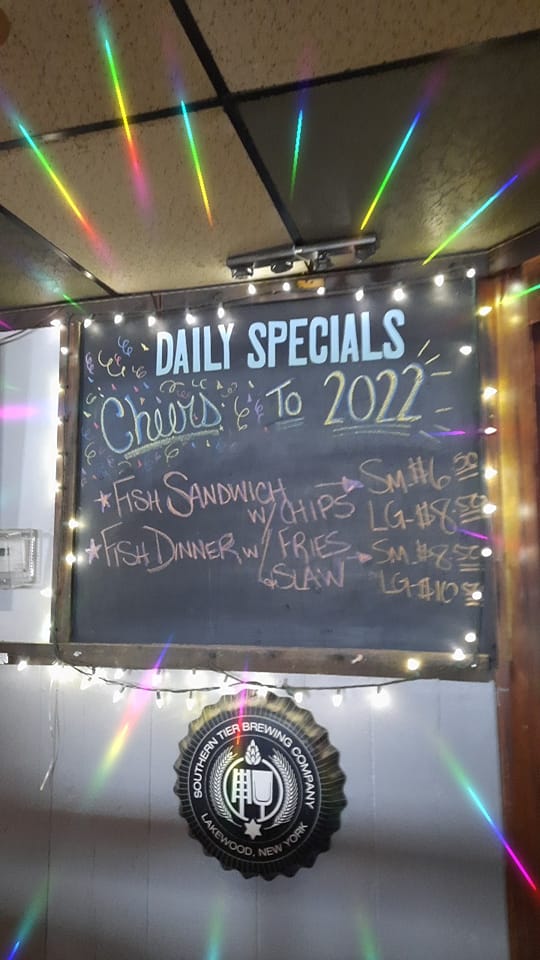 DAILY SPECIALS
Cheers To 2022
★FISH SANDWICH W/ CHIPS → SM.$6.50
LG-$8.50
★FISH DINNER W/ FRIES → SM.$8.50
& SLAW LG-$10.50
SOUTHERN TIER BREWING COMPANY
LAKEWOOD, NEW YORK